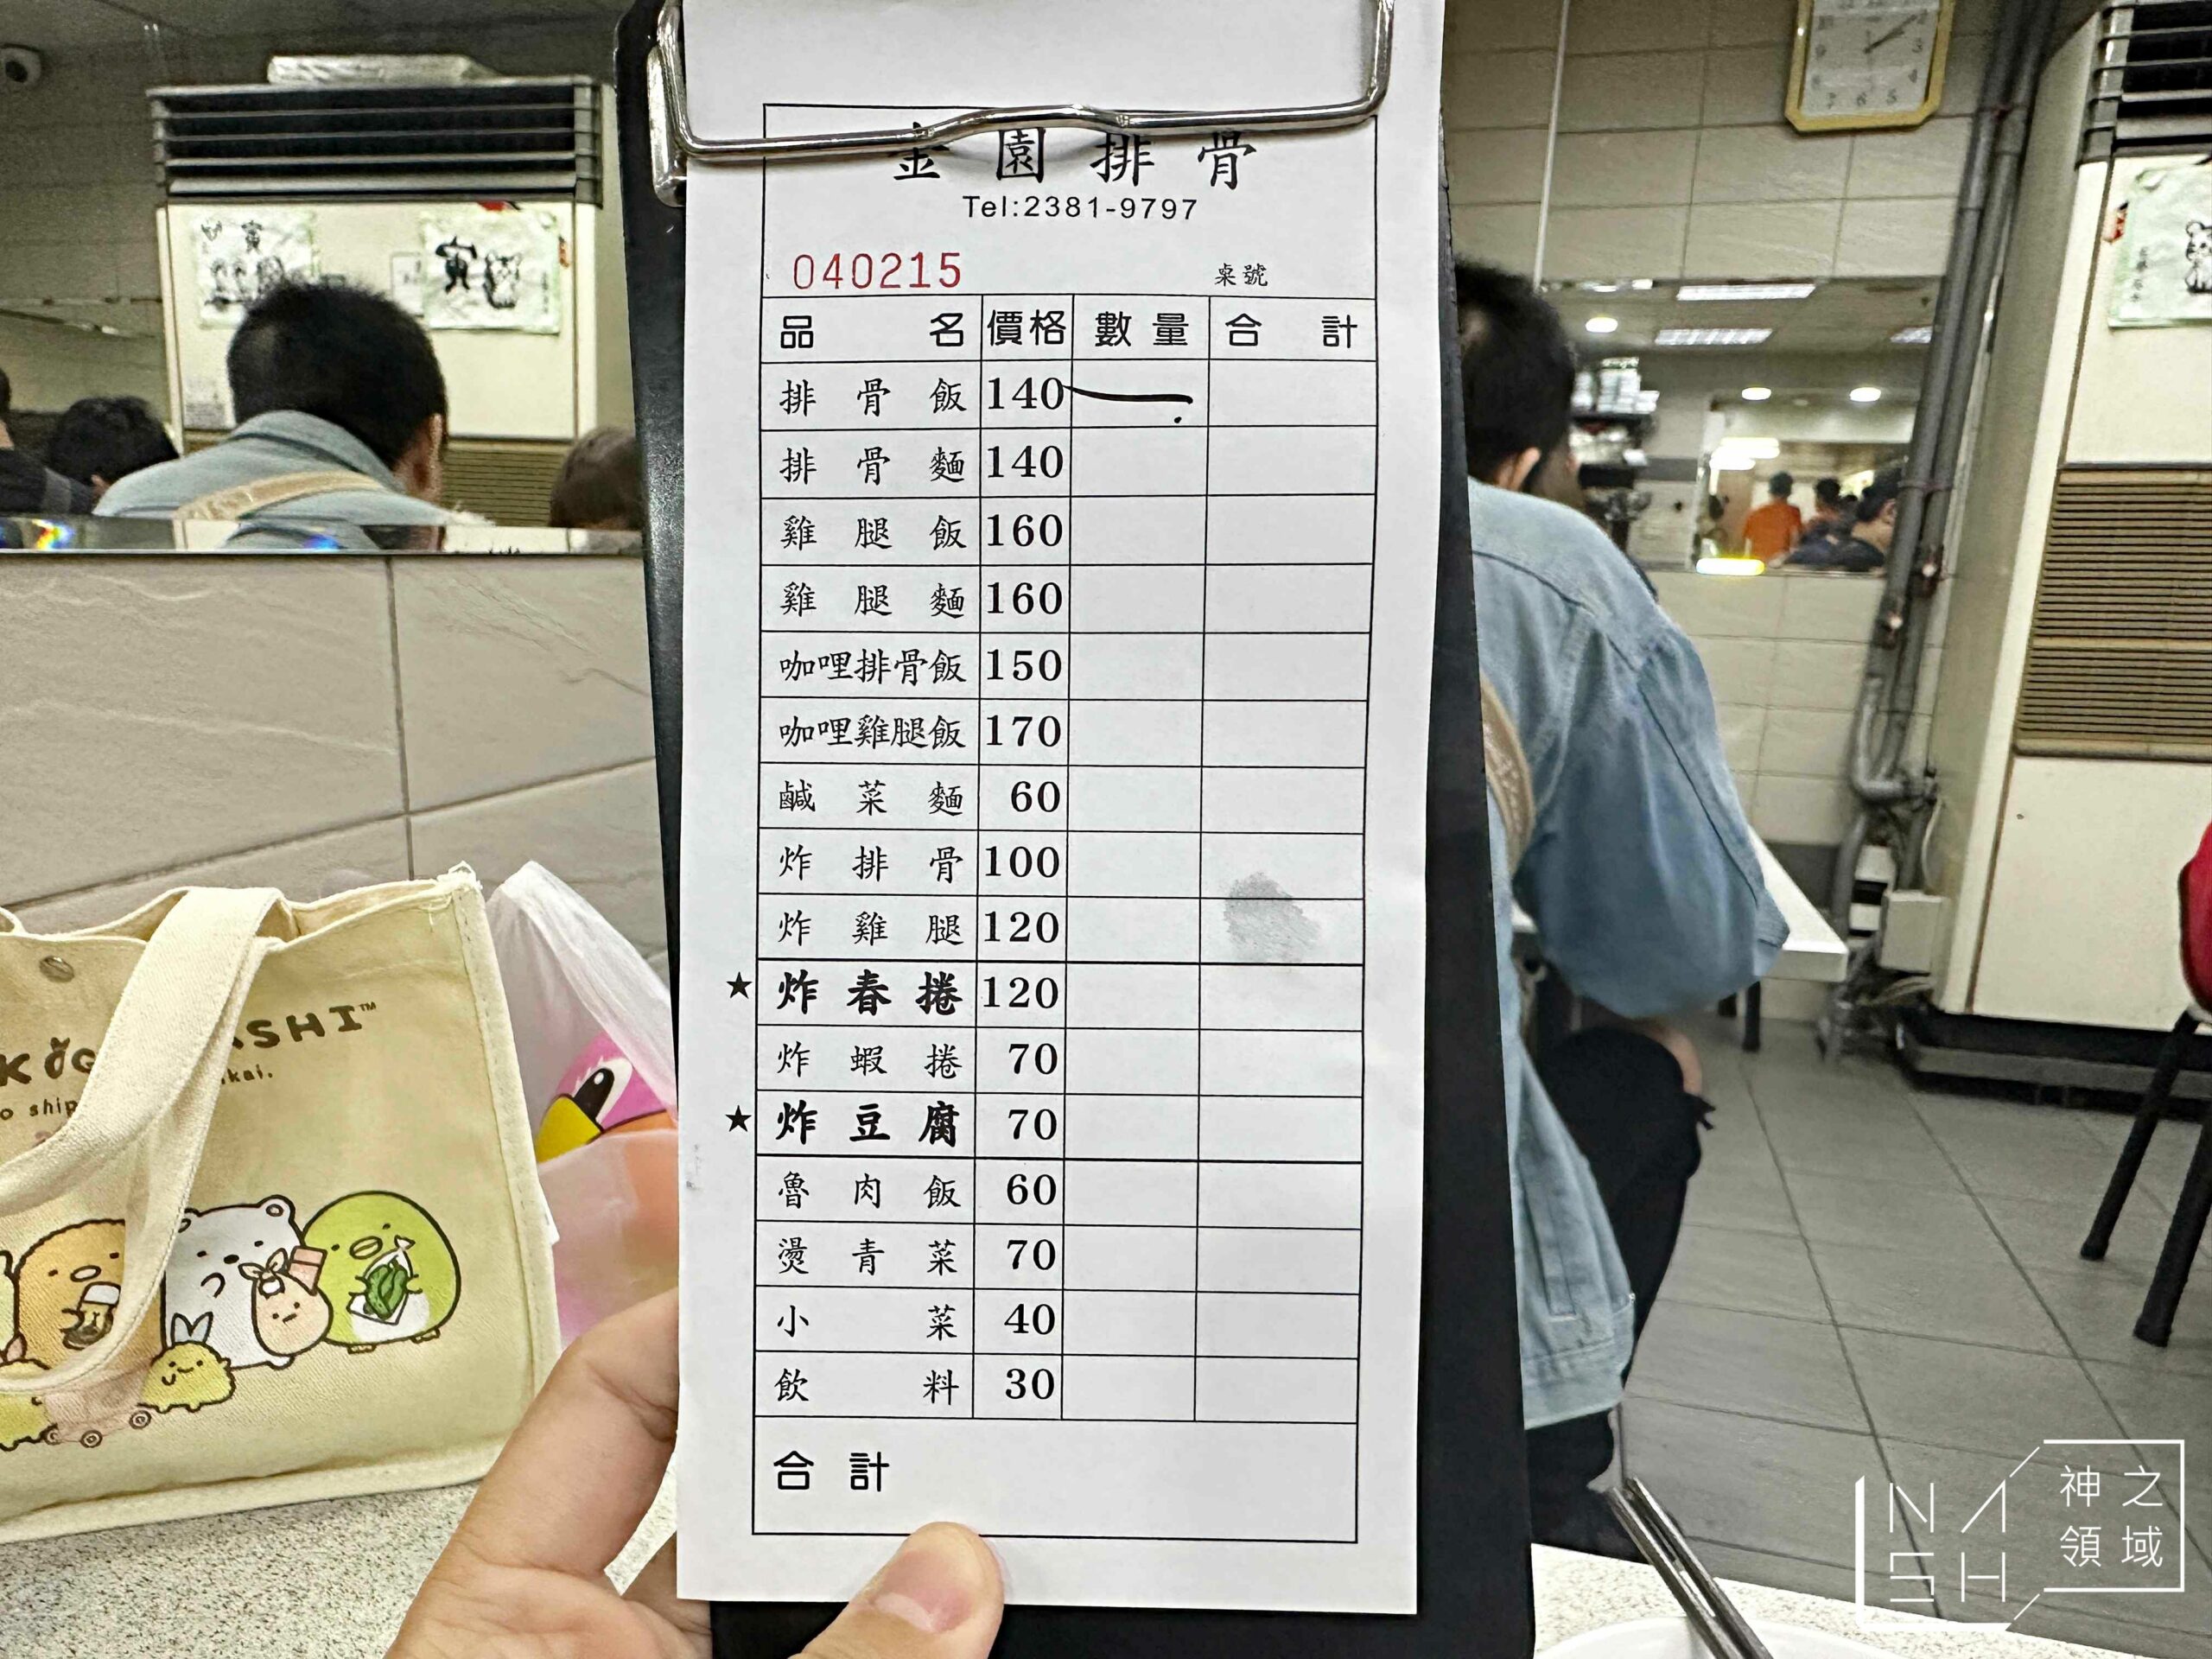 金園排骨
Tel:2381-9797
040215 桌號
品名 價格 數量 合計
排骨飯 140
排骨麵 140
雞腿飯 160
雞腿麵 160
咖哩排骨飯 150
咖哩雞腿飯 170
鹹菜麵 60
炸排骨 100
炸雞腿 120
★炸春捲 120
炸蝦捲 70
★炸豆腐 70
魯肉飯 60
燙青菜 70
小菜 40
飲料 30
合計
寅
寅
ASHI™
kai.
o ship
NASH
神之
領域